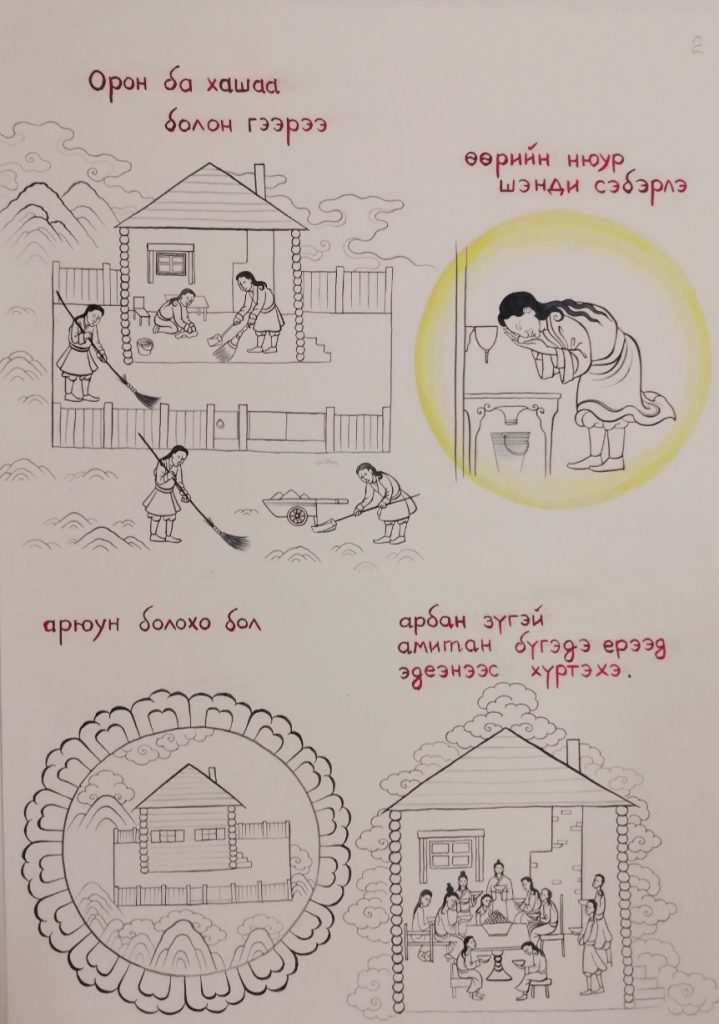 2
Орон ба хашаа
болон гээрээ
өөрийн нюур
шэнди сэбэрлэ
арюун болохо бол
арбан зүгэй
амитан бүгэдэ ерээд
эдеэнээс хүртэхэ.